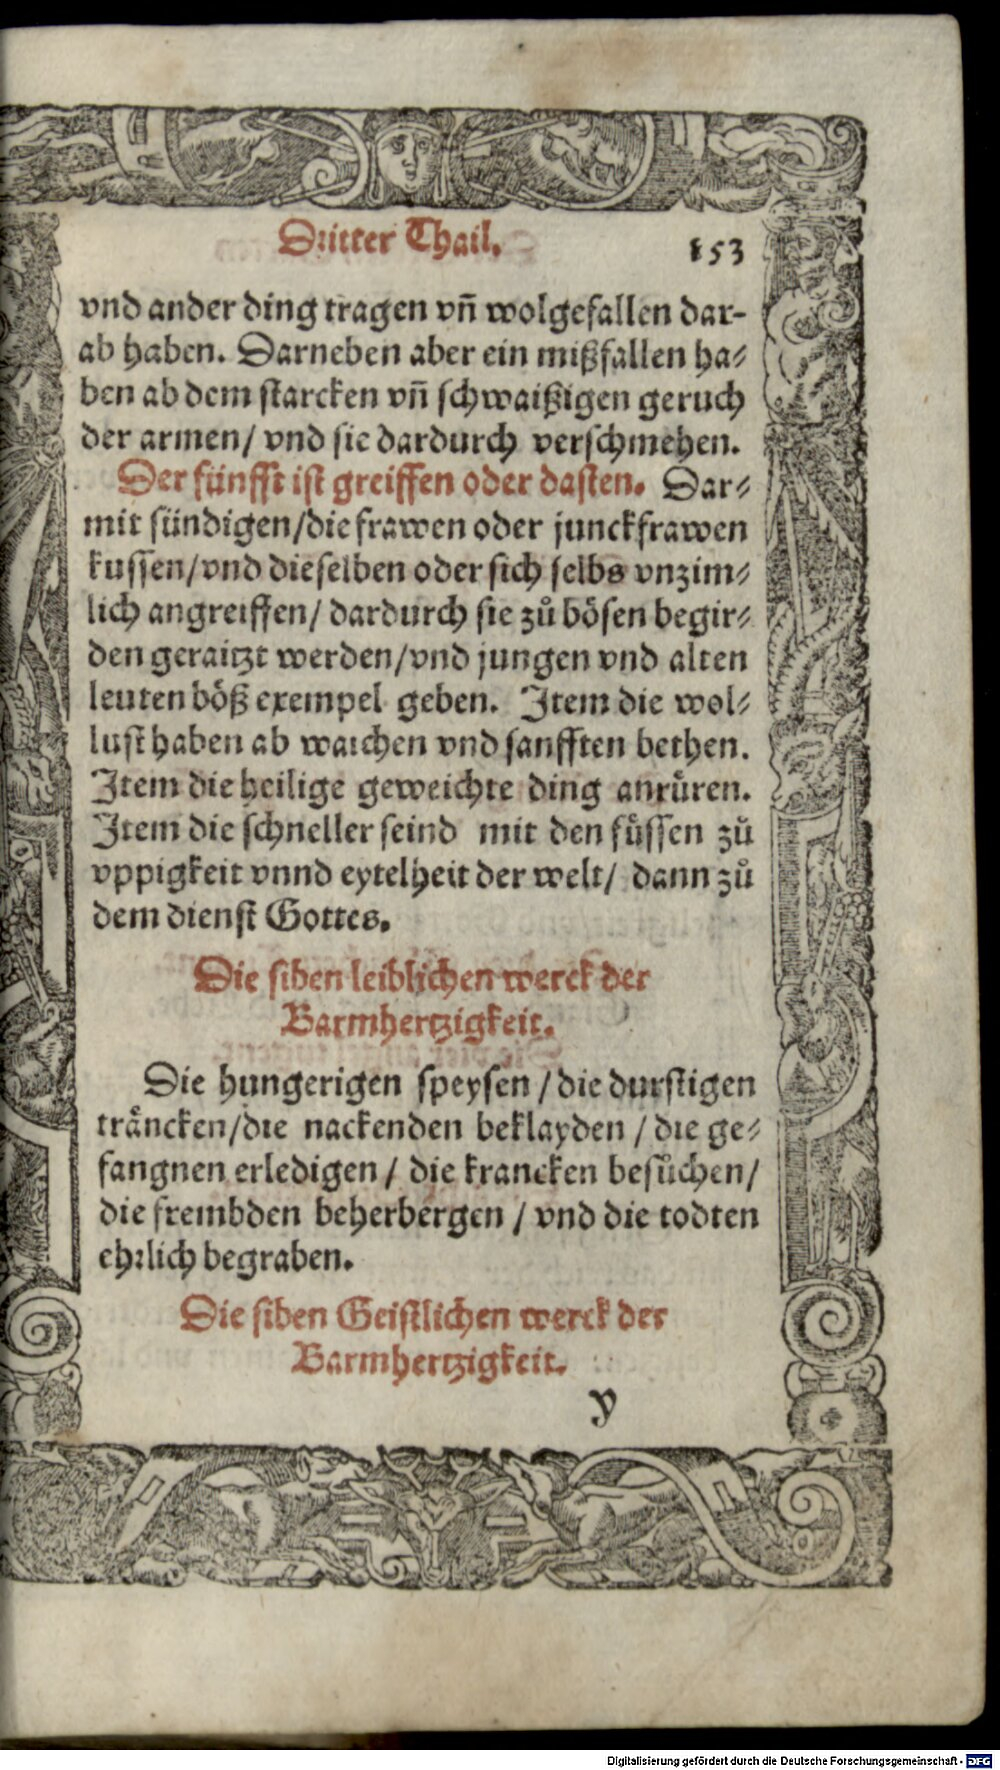 Dritter Thail. 153
vnd ander ding tragen vñ wolgefallen dar-
ab haben. Darneben aber ein mißfallen ha⸗
ben ab dem starcken vñ schwaißigen geruch
der armen/ vnd sie dardurch verschmehen.
Der fünfft ist greiffen oder dasten. Dar⸗
mit sündigen/die frawen oder junckfrawen
kussen/vnd dieselben oder sich selbs vnzim⸗
lich angreiffen/ dardurch sie zů bösen begir⸗
den geraitzt werden/vnd jungen vnd alten
leuten böß exempel geben. Item die wol⸗
lust haben ab waichen vnd sanfften bethen.
Item die heilige geweichte ding anrůren.
Item die schneller seind mit den fůssen zů
vppigkeit vnnd eytelheit der welt/ dann zů
dem dienst Gottes.
Die siben leiblichen werck der
Barmhertzigkeit.
Die hungerigen speysen / die durstigen
träncken/die nackenden beklayden / die ge⸗
fangnen erledigen / die krancken besůchen/
die frembden beherbergen / vnd die todten
ehrlich begraben.
Die siben Geistlichen werck der
Barmhertzigkeit.
y
Digitalisierung gefördert durch die Deutsche Forschungsgemeinschaft - DFG